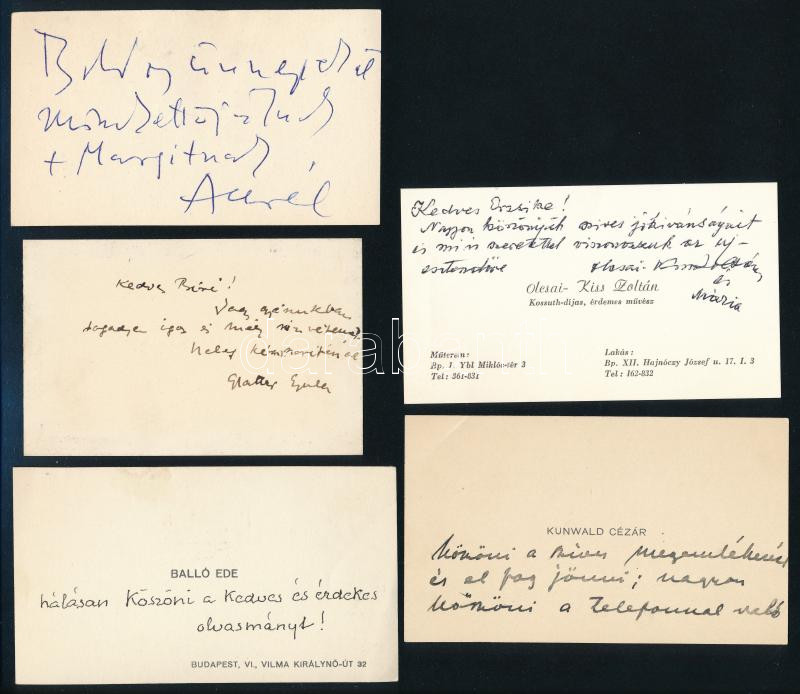 Boldog ünnepeket
mindkettőjüknek
+ Margitnak
Aurél
Kedves Bözsi!
Nagy gyászukban
fogadja igaz és mély részvétemet
Glatter Gyula
BALLÓ EDE
hálásan köszöni a kedves és érdekes
olvasmányt!
BUDAPEST, VI., VILMA KIRÁLYNŐ-ÚT 32
Kedves Erzsike!
Nagyon köszönjük szíves jókívánságait
és mi is szeretettel viszonozzuk az új-
esztendőre Olcsai-Kiss Zoltán
és
Mária
Olcsai-Kiss Zoltán
Kossuth-díjas, érdemes művész
Műterem:
Bp. I. Ybl Miklós-tér 3
Tel: 361-831
Lakás:
Bp. XII. Hajnóczy József u. 17. I. 3
Tel: 162-832
KUNWALD CÉZÁR
köszöni a szíves megemlékezést
és el fog jönni; nagyon
köszöni a telefonnal való
darabanth.com